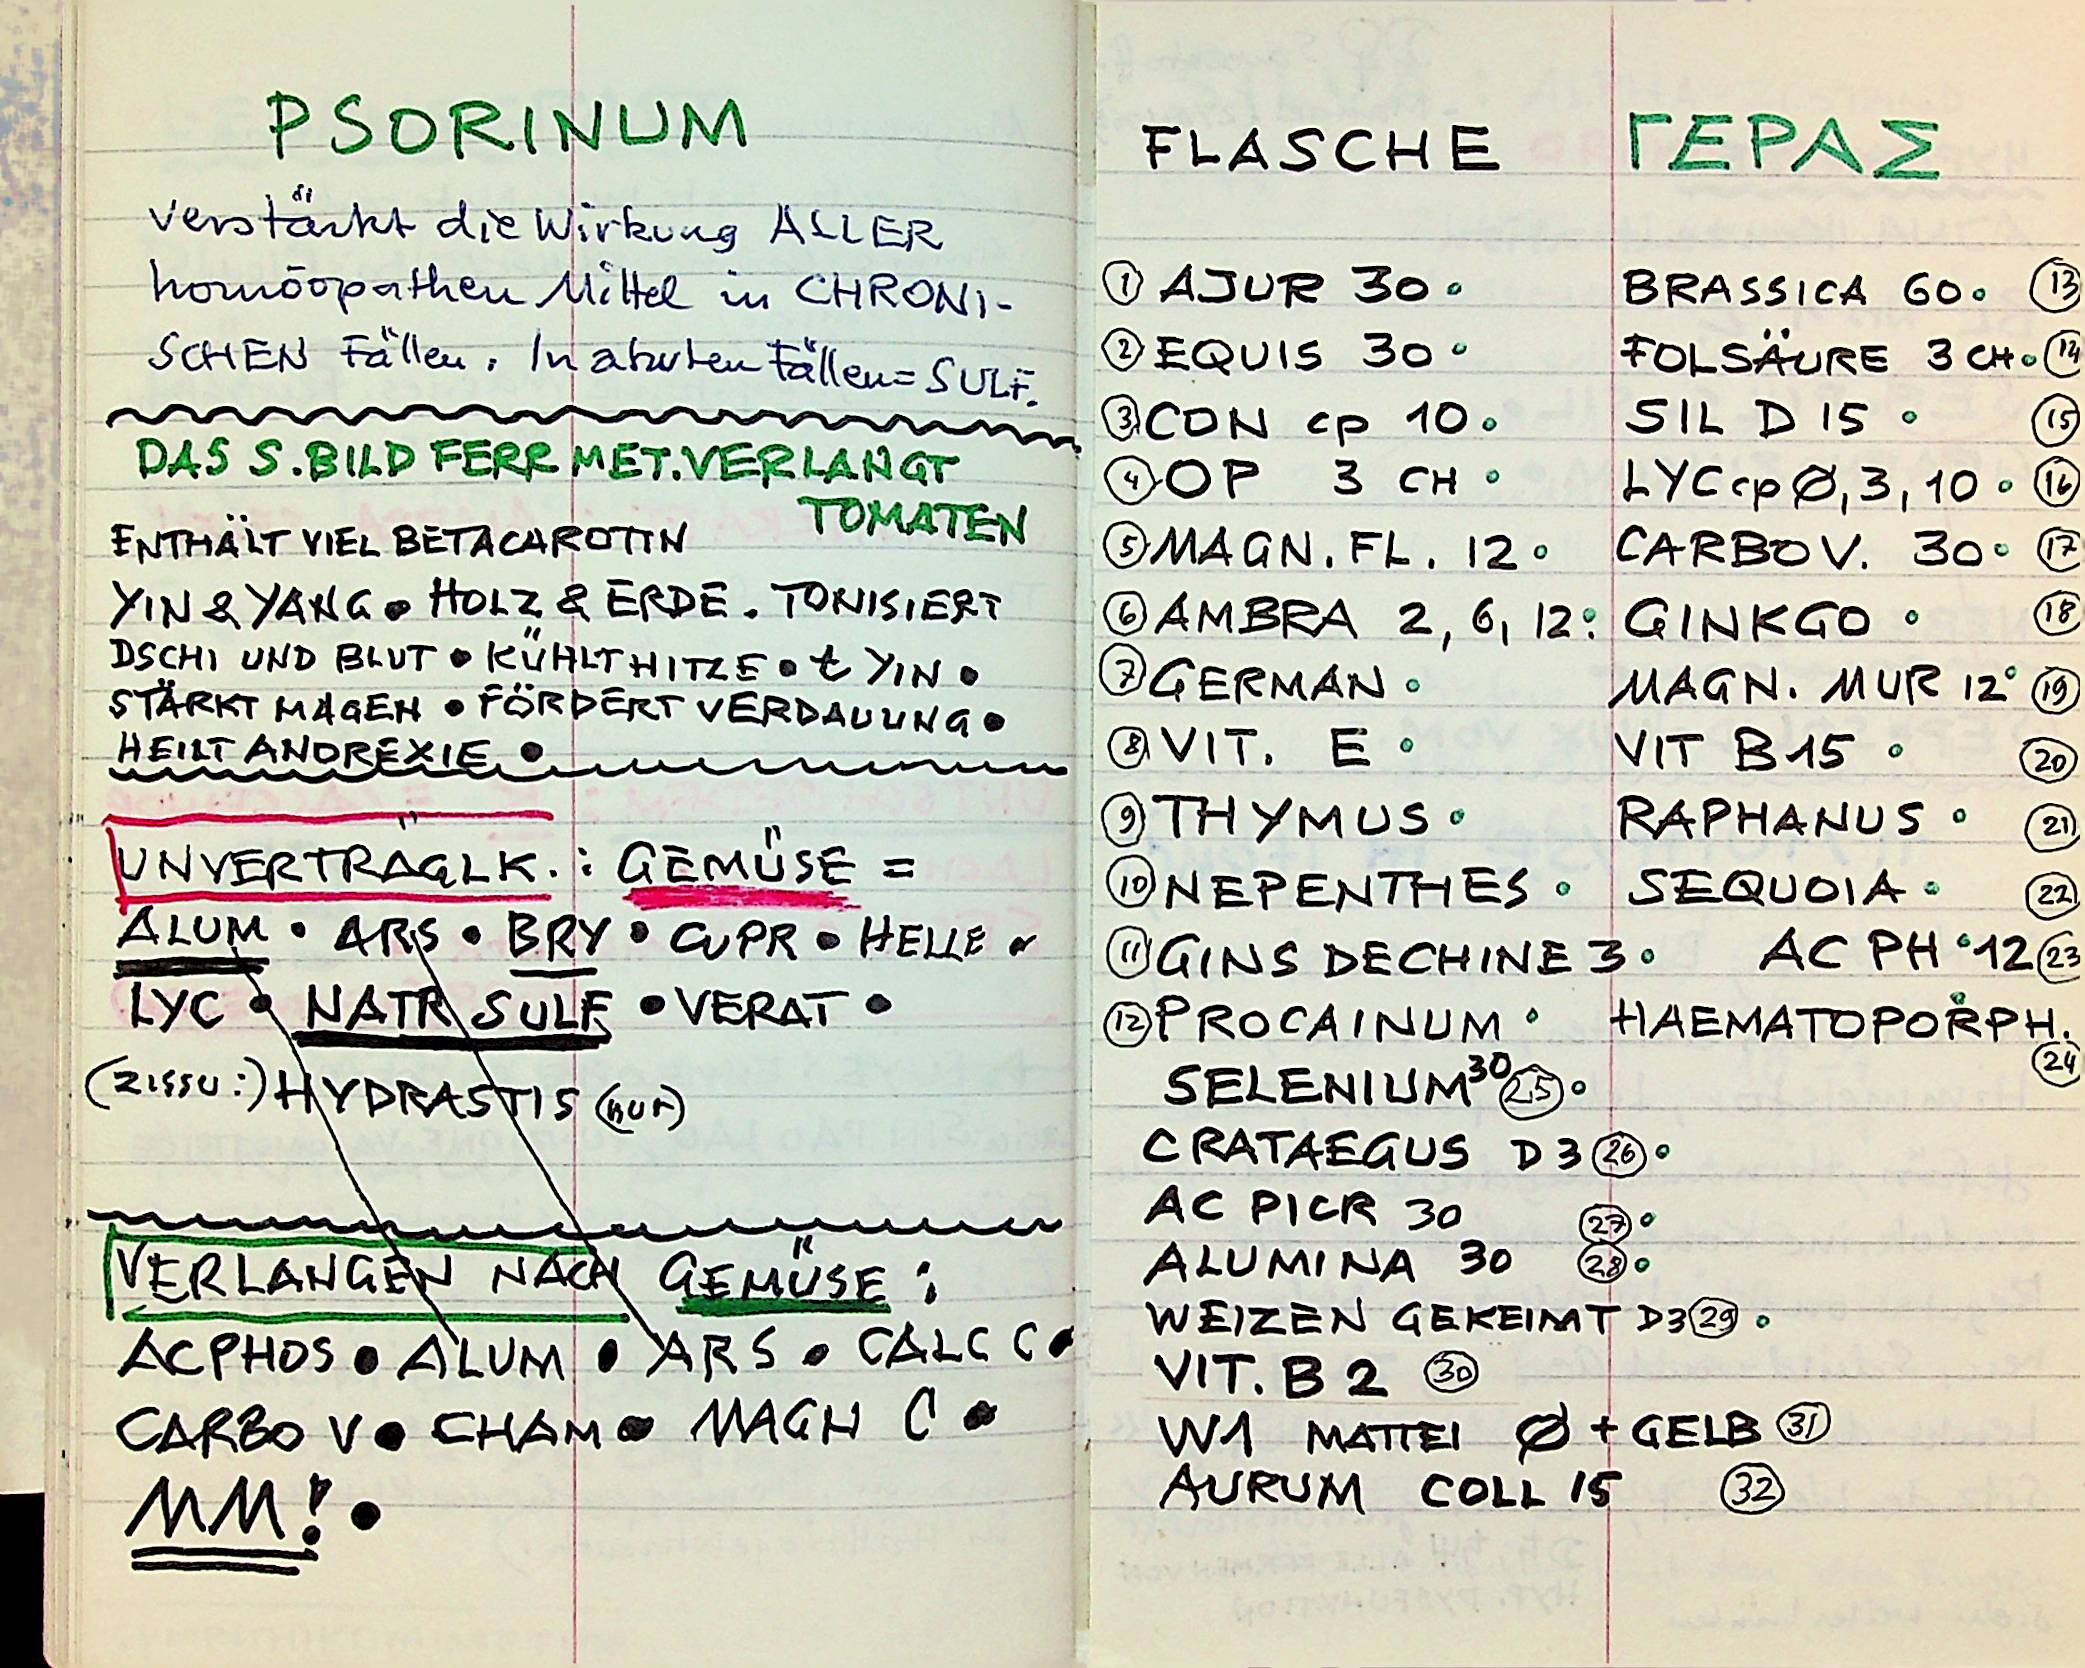 PSORINUM
verstärkt die Wirkung ALLER
homöopathen Mittel in CHRONI-
SCHEN Fällen. In akuten Fällen = SULF.
DAS S.BILD FERR MET. VERLANGT
TOMATEN
ENTHÄLT VIEL BETACAROTIN
YIN & YANG • HOLZ & ERDE. TONISIERT
DSCHI UND BLUT • KÜHLT HITZE • t YIN •
STÄRKT MAGEN • FÖRDERT VERDAUUNG •
HEILT ANOREXIE •
UNVERTRÄGLK. : GEMÜSE =
ALUM • ARS • BRY • CUPR • HELLE •
LYC • NATR SULF • VERAT •
(ZISSU:) HYDRASTIS (nur)
VERLANGEN NACH GEMÜSE :
ACPHOS • ALUM • ARS • CALC C •
CARBO V • CHAM • MAGN C •
MM! •
FLASCHE ΓΕΡΑΣ
① AJUR 30 • BRASSICA 60 • ⑬
② EQUIS 30 • FOLSÄURE 3 CH • ⑭
③ CON cp 10 • SIL D 15 • ⑮
④ OP 3 CH • LYC cp Ø, 3, 10 • ⑯
⑤ MAGN. FL. 12 • CARBO V. 30 • ⑰
⑥ AMBRA 2, 6, 12 : GINKGO • ⑱
⑦ GERMAN • MAGN. MUR 12 • ⑲
⑧ VIT. E • VIT B 15 • ⑳
⑨ THYMUS • RAPHANUS • ㉑
⑩ NEPENTHES • SEQUOIA • ㉒
⑪ GINS DECHINE 3 • AC PH • 12 ㉓
⑫ PROCAINUM • HAEMATOPORPH. •
㉔
SELENIUM 30 ㉕ •
CRATAEGUS D 3 ㉖ •
AC PICR 30 ㉗ •
ALUMINA 30 ㉘ •
WEIZEN GEKEIMT D3 ㉙ •
VIT. B 2 ㉚
W1 MATTEI Ø + GELB ㉛
AURUM COLL 15 ㉜